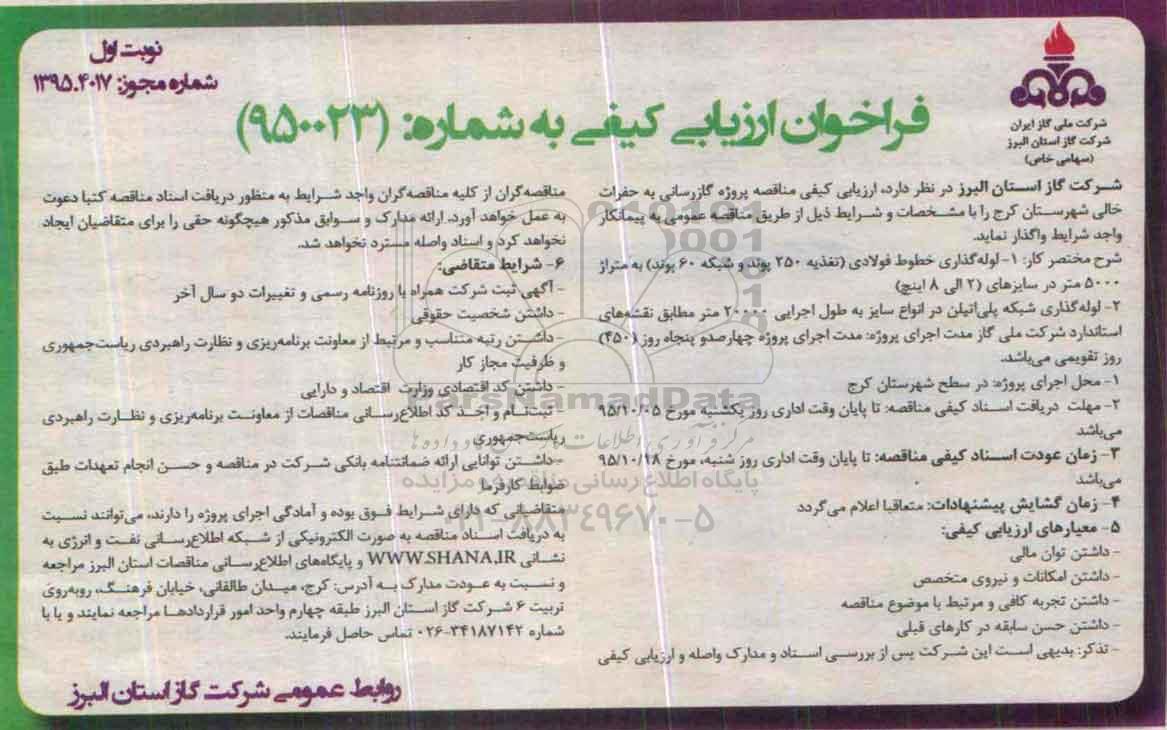 نوبت اول
شماره مجوز: ۱۳۹۵.۴۰۱۷
شرکت ملی گاز ایران
شرکت گاز استان البرز
(سهامی خاص)
فراخوان ارزیابی کیفی به شماره: (۹۵۰۰۲۳)
شرکت گاز استان البرز در نظر دارد، ارزیابی کیفی مناقصه پروژه گازرسانی به حفرات
خالی شهرستان کرج را با مشخصات و شرایط ذیل از طریق مناقصه عمومی به پیمانکار
واجد شرایط واگذار نماید.
شرح مختصر کار: ۱- لوله‌گذاری خطوط فولادی (تغذیه ۲۵۰ پوند و شبکه ۶۰ پوند) به متراژ
۵۰۰۰ متر در سایزهای (۲ الی ۸ اینچ)
۲- لوله‌گذاری شبکه پلی‌اتیلن در انواع سایز به طول اجرایی ۲۰۰۰۰ متر مطابق نقشه‌های
استاندارد شرکت ملی گاز مدت اجرای پروژه: مدت اجرای پروژه چهارصدو پنجاه روز (۴۵۰)
روز تقویمی می‌باشد.
۱- محل اجرای پروژه: در سطح شهرستان کرج
۲- مهلت دریافت اسناد کیفی مناقصه: تا پایان وقت اداری روز یکشنبه مورخ ۹۵/۱۰/۰۵
می‌باشد
۳- زمان عودت اسناد کیفی مناقصه: تا پایان وقت اداری روز شنبه، مورخ ۹۵/۱۰/۱۸
می‌باشد
۴- زمان گشایش پیشنهادات: متعاقبا اعلام می‌گردد
۵- معیارهای ارزیابی کیفی:
- داشتن توان مالی
- داشتن امکانات و نیروی متخصص
- داشتن تجربه کافی و مرتبط با موضوع مناقصه
- داشتن حسن سابقه در کارهای قبلی
- تذکر: بدیهی است این شرکت پس از بررسی اسناد و مدارک واصله و ارزیابی کیفی
مناقصه‌گران از کلیه مناقصه‌گران واجد شرایط به منظور دریافت اسناد مناقصه کتبا دعوت
به عمل خواهد آورد. ارائه مدارک و سوابق مذکور هیچگونه حقی را برای متقاضیان ایجاد
نخواهد کرد و اسناد واصله مسترد نخواهد شد.
۶- شرایط متقاضی:
- آگهی ثبت شرکت همراه با روزنامه رسمی و تغییرات دو سال آخر
- داشتن شخصیت حقوقی
- داشتن رتبه متناسب و مرتبط از معاونت برنامه‌ریزی و نظارت راهبردی ریاست‌جمهوری
و ظرفیت مجاز کار
- داشتن کد اقتصادی وزارت اقتصاد و دارایی
- ثبت‌نام و اخذ کد اطلاع‌رسانی مناقصات از معاونت برنامه‌ریزی و نظارت راهبردی
ریاست‌جمهوری
- داشتن توانایی ارائه ضمانتنامه بانکی شرکت در مناقصه و حسن انجام تعهدات طبق
ضوابط کارفرما
متقاضیانی که دارای شرایط فوق بوده و آمادگی اجرای پروژه را دارند، می‌توانند نسبت
به دریافت اسناد مناقصه به صورت الکترونیکی از شبکه اطلاع‌رسانی نفت و انرژی به
نشانی WWW.SHANA.IR و پایگاه‌های اطلاع‌رسانی مناقصات استان البرز مراجعه
و نسبت به عودت مدارک به آدرس: کرج، میدان طالقانی، خیابان فرهنگ، روبه‌روی
تربیت ۶ شرکت گاز استان البرز طبقه چهارم واحد امور قراردادها مراجعه نمایند و یا با
شماره ۰۲۶-۳۴۱۸۷۱۴۲ تماس حاصل فرمایند.
روابط عمومی شرکت گاز استان البرز
ParsNamadData
پایگاه اطلاع رسانی مناقصه و مزایده
۰۲۱-۸۸۳۴۹۶۷۰-۵